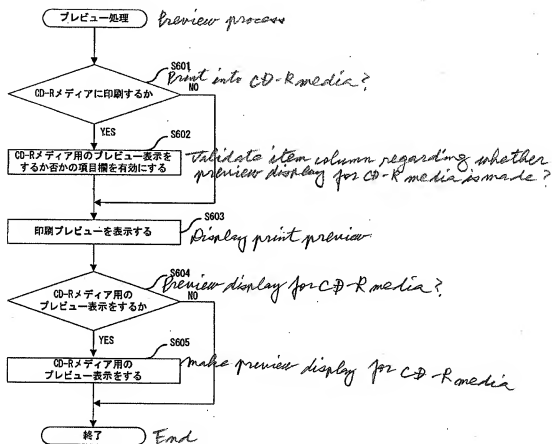 プレビュー処理 Preview process
S601
Print into CD-R media?
CD-Rメディアに印刷するか NO
YES
S602
CD-Rメディア用のプレビュー表示を
するか否かの項目欄を有効にする
Validate item column regarding whether
preview display for CD-R media is made?
S603
印刷プレビューを表示する
Display print preview
S604
Preview display for CD-R media?
CD-Rメディア用の
プレビュー表示をするか NO
YES
S605
CD-Rメディア用の
プレビュー表示をする
make preview display for CD-R media
終了 End